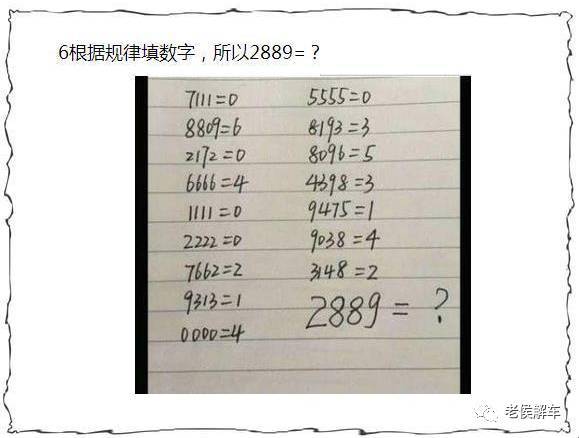 6根据规律填数字，所以2889=？
7111=0
8809=6
2172=0
6666=4
1111=0
2222=0
7662=2
9313=1
0000=4
5555=0
8193=3
8096=5
4398=3
9475=1
9038=4
3148=2
2889=?
老侯解车